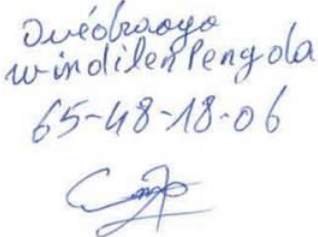 Ouédraogo
windilenPengola
65-48-18-06